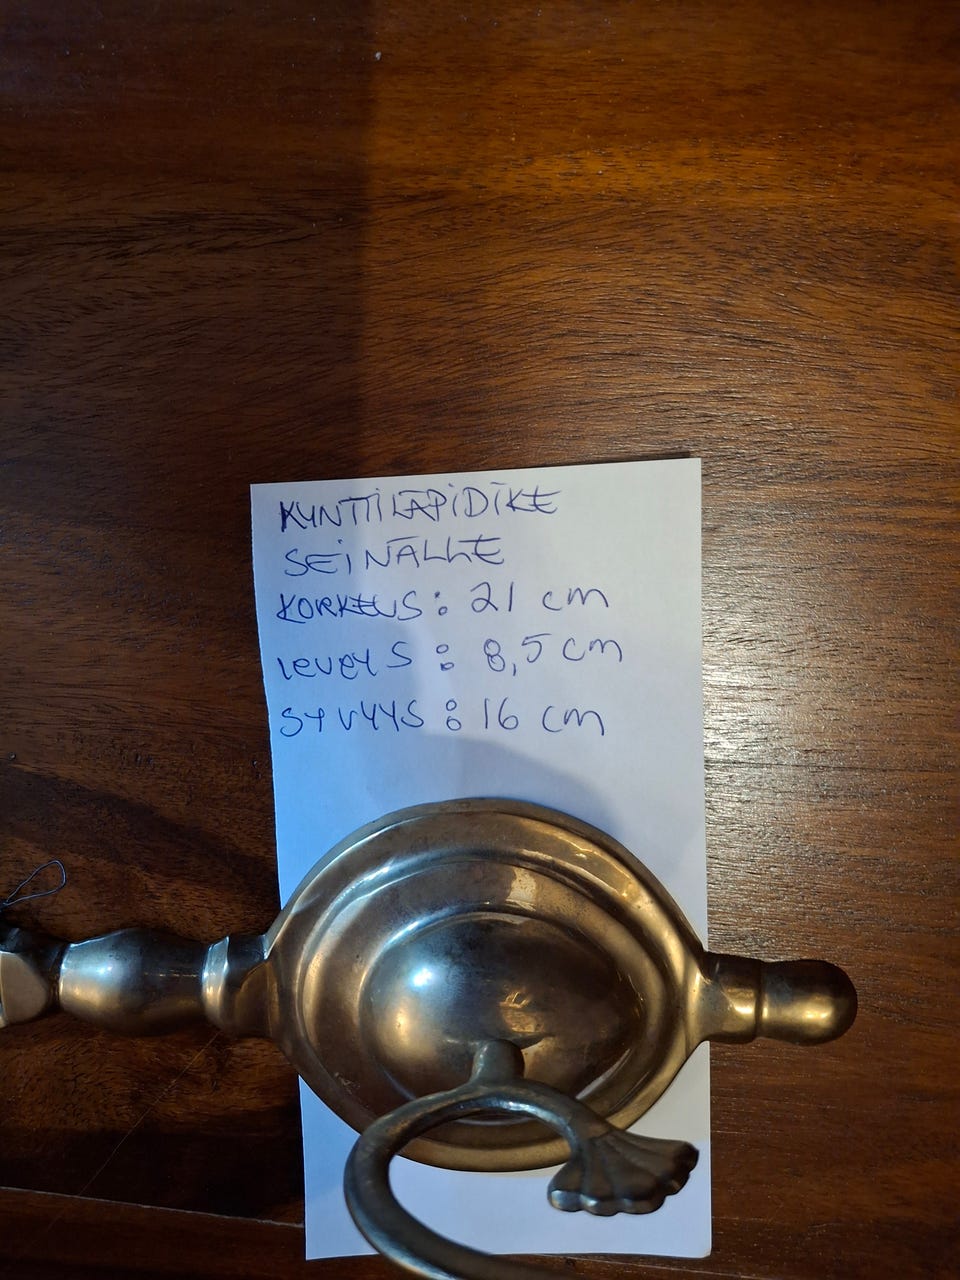 KYNTTILÄPIDIKE
SEINÄLLE
KORKEUS: 21 cm
leveys: 8,5 cm
SYVYYS: 16 cm